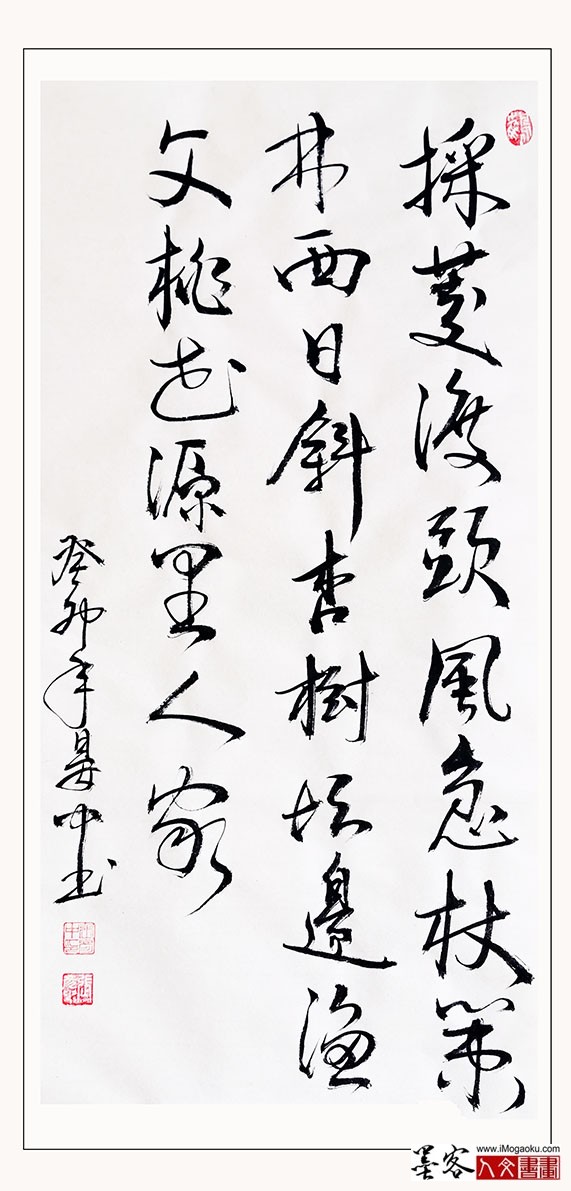 採菱渡頭風急杖策
林西日斜杏樹坛邊渔
父桃花源里人家
癸卯年晏中书
墨客
www.iMogaoku.com
人文書畫